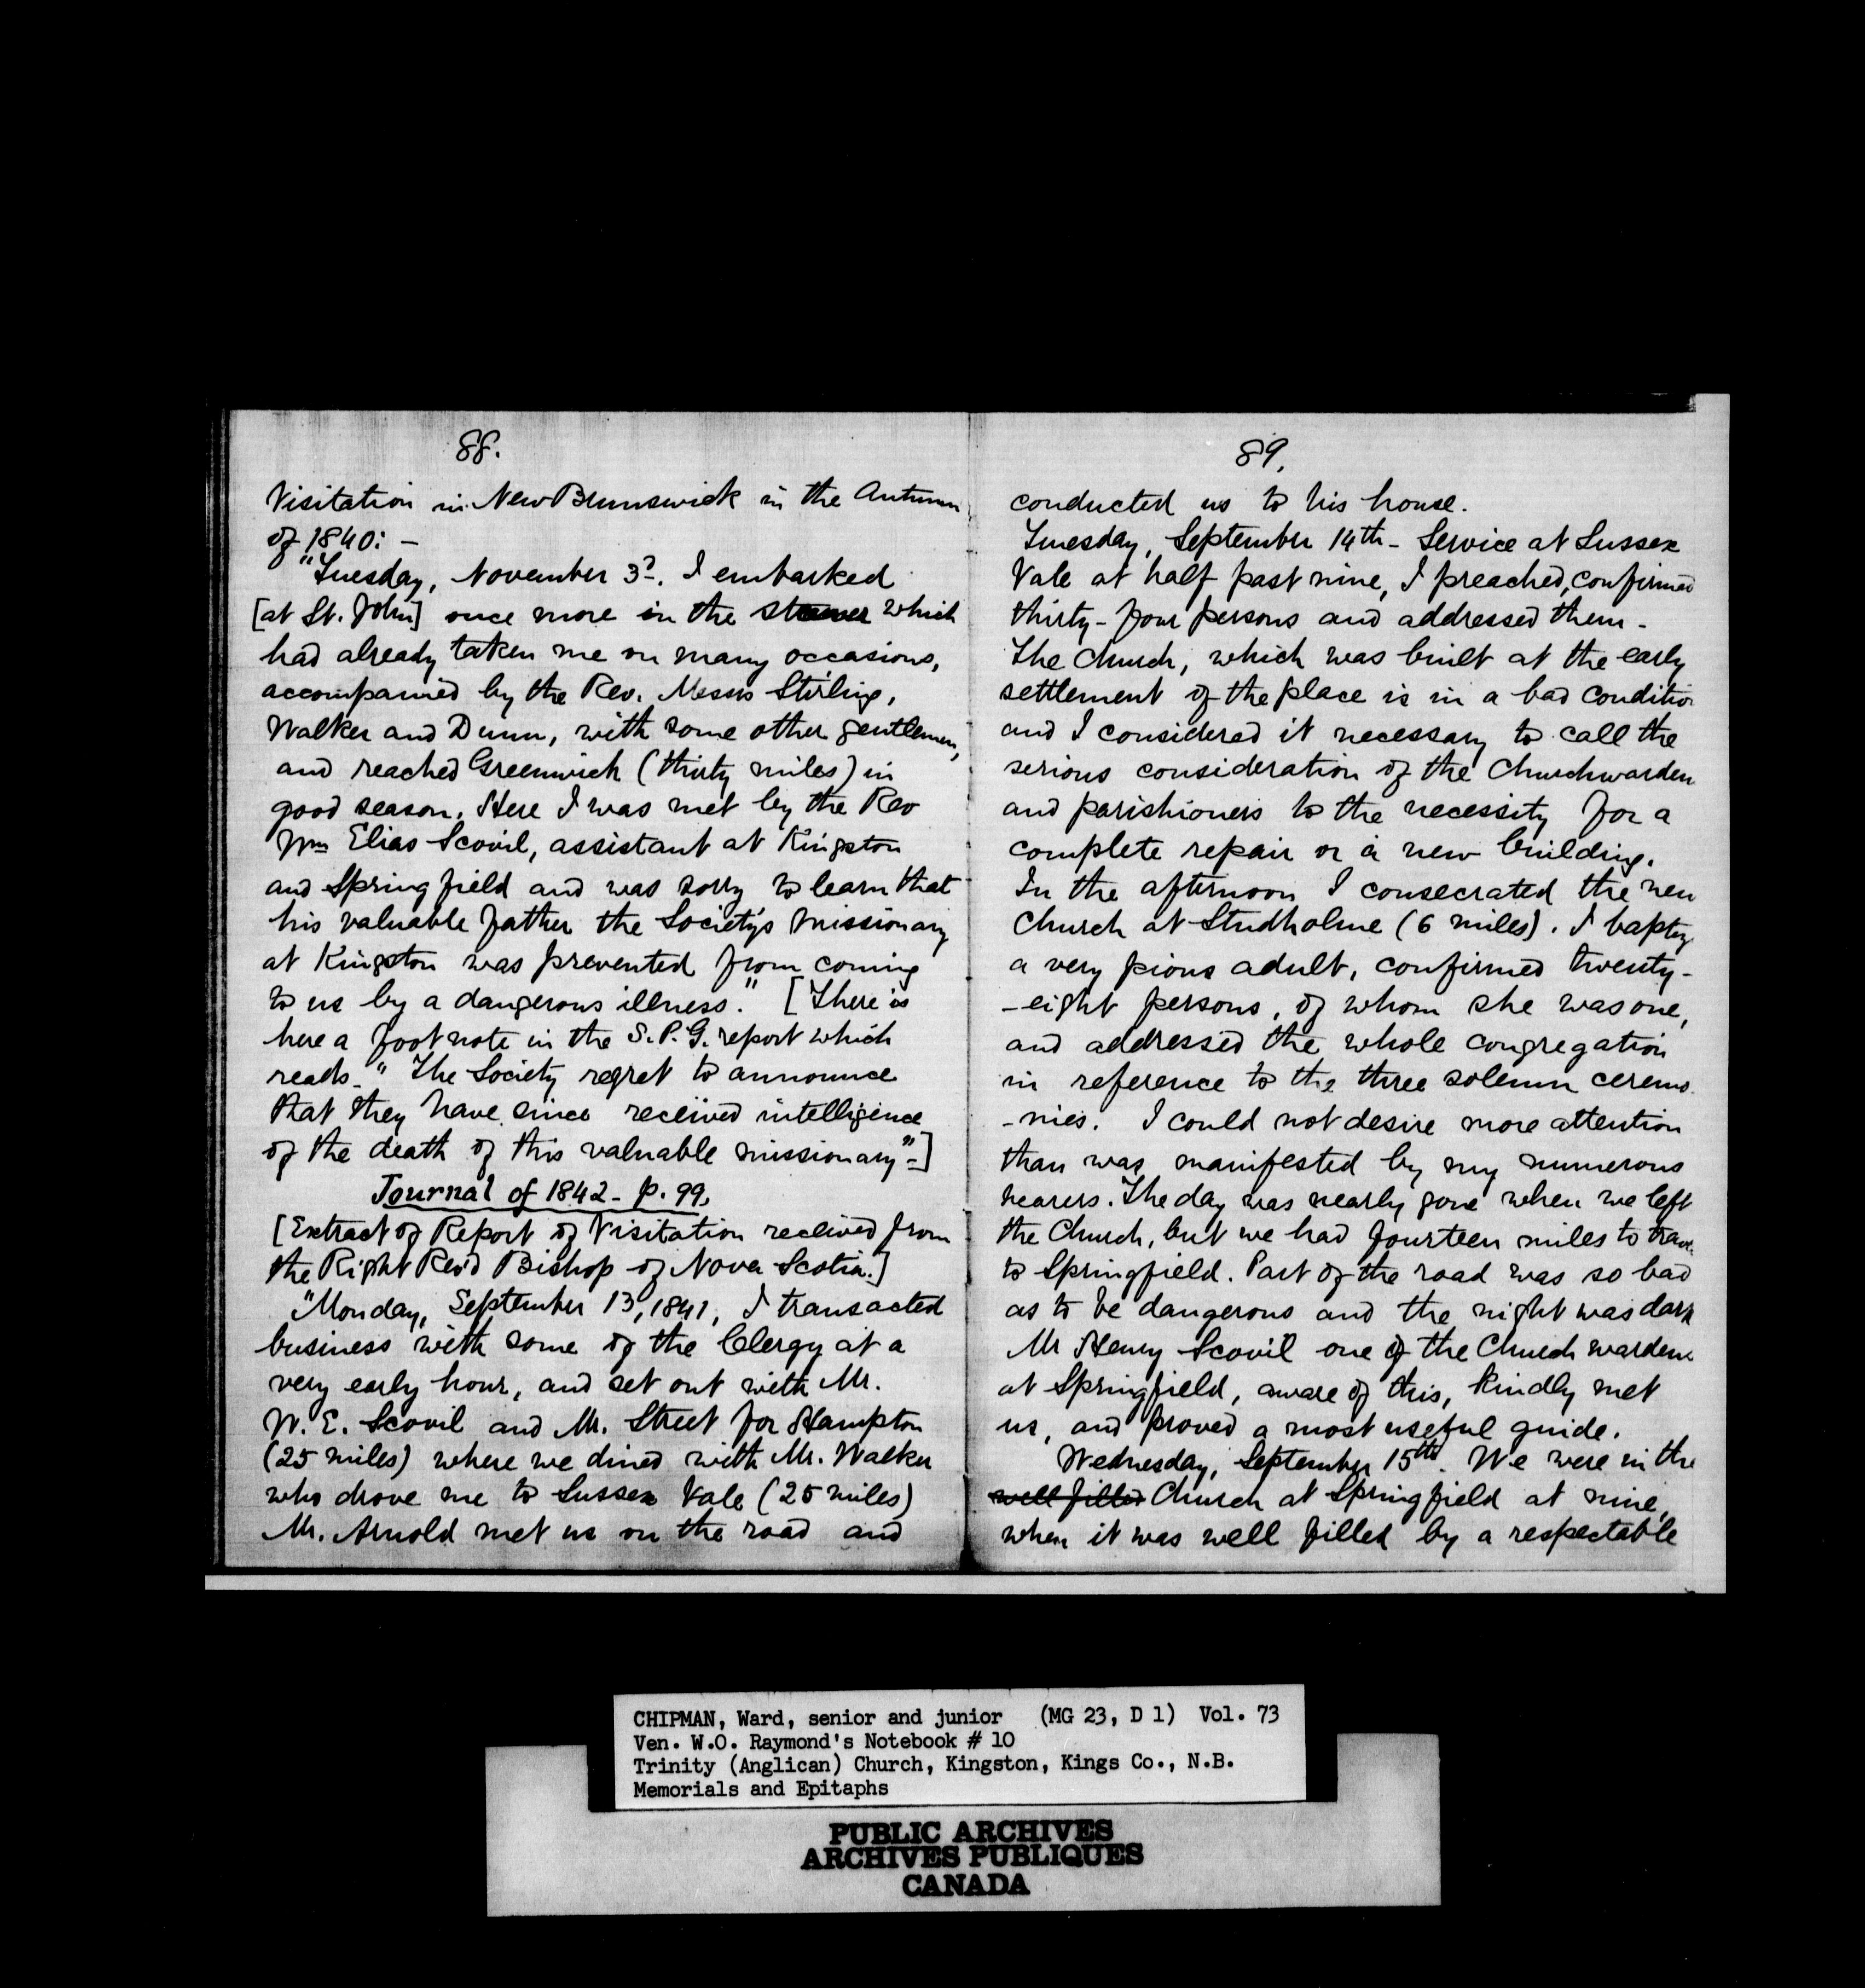 88.
Visitation in New Brunswick in the Autumn
of 1840: -
"Tuesday, November 3d. I embarked
[at St. John] once more in the steamer which
had already taken me on many occasions,
accompanied by the Rev. Messrs Stirling,
Walker and Dunn, with some other gentlemen,
and reached Greenwich (thirty miles) in
good season. Here I was met by the Rev
Wm Elias Scovil, assistant at Kingston
and Springfield and was sorry to learn that
his valuable father the Society's Missionary
at Kingston was prevented from coming
to us by a dangerous illness." [There is
here a foot note in the S.P.G. report which
reads. "The Society regret to announce
that they have since received intelligence
of the death of this valuable missionary"-]
Journal of 1842 - p. 99.
[Extract of Report of Visitation received from
the Right Rev'd Bishop of Nova Scotia.]
"Monday, September 13, 1841, I transacted
business with some of the Clergy at a
very early hour, and set out with Mr.
W. E. Scovil and Mr. Street for Hampton
(25 miles) where we dined with Mr. Walker
who drove me to Sussex Vale (25 miles)
Mr. Arnold met us on the road and
89.
conducted us to his house.
Tuesday, September 14th - Service at Sussex
Vale at half past nine, I preached, confirmed
thirty-four persons and addressed them -
The Church, which was built at the early
settlement of the place is in a bad conditio
and I considered it necessary to call the
serious consideration of the Churchwarden
and parishioners to the necessity for a
complete repair or a new building.
In the afternoon I consecrated the new
Church at Studholme (6 miles). I baptiz
a very pious adult, confirmed twenty-
-eight persons, of whom she was one,
and addressed the whole congregation
in reference to the three solemn ceremo
-nies. I could not desire more attention
than was manifested by my numerous
hearers. The day was nearly gone when we left
the Church, but we had fourteen miles to trav
to Springfield. Part of the road was so bad
as to be dangerous and the night was dark
Mr Henry Scovil one of the Church wardens
at Springfield, aware of this, kindly met
us, and proved a most useful guide.
Wednesday, September 15th. We were in the
well filled Church at Springfield at nine,
when it was well filled by a respectable
CHIPMAN, Ward, senior and junior (MG 23, D 1) Vol. 73
Ven. W.O. Raymond's Notebook # 10
Trinity (Anglican) Church, Kingston, Kings Co., N.B.
Memorials and Epitaphs
PUBLIC ARCHIVES
ARCHIVES PUBLIQUES
CANADA